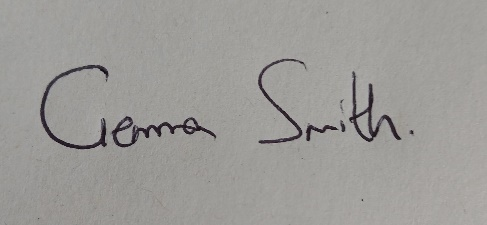 Gemma Smith.